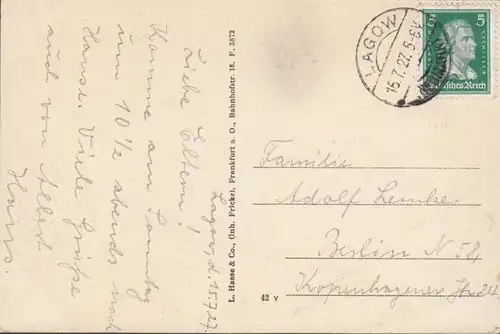 Lagow, d. 15.7.27.
Liebe Eltern!
Komme am Sonntag
um 10½ abends nach
Hause. Viele Grüße
auch von Albert
Hans.
L. Haase & Co., (Inh. Fricke), Frankfurt a. O., Bahnhofstr. 16. F. 3872
42 v
LAGOW
15.7.27. 5-6
5
Deutsches Reich
Familie
Adolf Lemke
Berlin N 58
Kopenhagener Str. 24